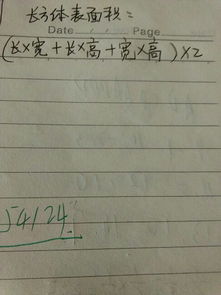 长方体表面积=
Date Page
(长×宽+长×高+宽×高)×2
54124